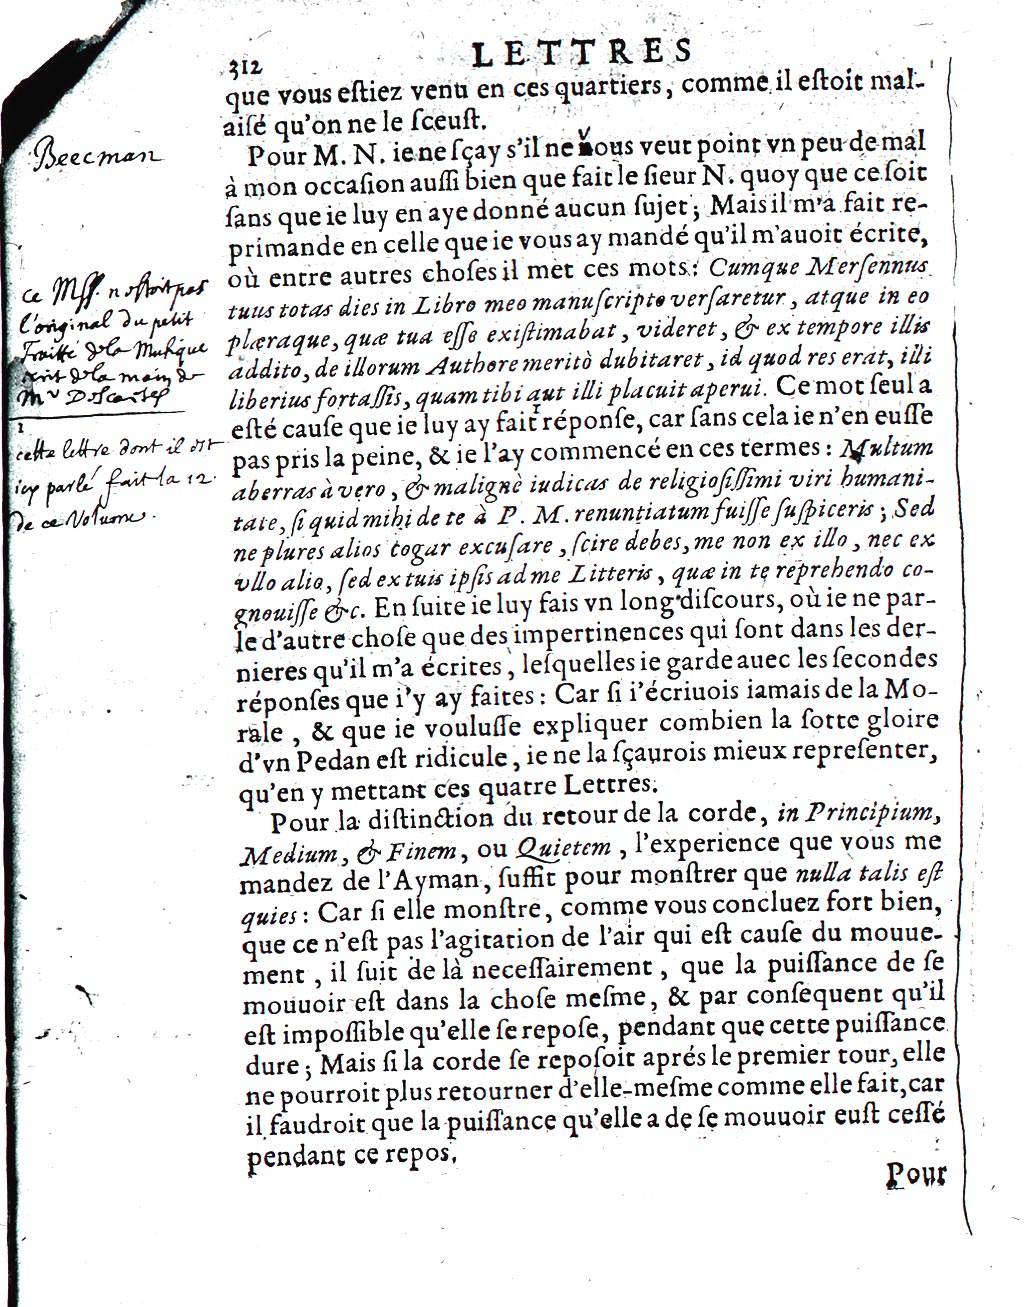 312 LETTRES
que vous eſtiez venu en ces quartiers, comme il eſtoit mal-
aiſé qu'on ne le ſceuſt.
Pour M. N. ie ne ſçay s'il ne vous veut point vn peu de mal
à mon occaſion auſſi bien que fait le ſieur N. quoy que ce ſoit
ſans que ie luy en aye donné aucun ſujet; Mais il m'a fait re-
primande en celle que ie vous ay mandé qu'il m'auoit écrite,
où entre autres choſes il met ces mots: Cumque Merſennus
tuus totas dies in Libro meo manuſcripto verſaretur, atque in eo
plæraque, quæ tua eſſe exiſtimabat, videret, & ex tempore illis
addito, de illorum Authore meritò dubitaret, id quod res erat, illi
liberius fortaſſis, quam tibi aut illi placuit aperui. Ce mot ſeul a
eſté cauſe que ie luy ay fait 1 réponſe, car ſans cela ie n'en euſſe
pas pris la peine, & ie l'ay commencé en ces termes: Multum
aberras à vero, & malignè iudicas de religioſiſſimi viri humani-
tate, ſi quid mihi de te à P. M. renuntiatum fuiſſe ſuſpiceris; Sed
ne plures alios cogar excuſare, ſcire debes, me non ex illo, nec ex
vllo alio, ſed ex tuis ipſis ad me Litteris, quæ in te reprehendo co-
gnouiſſe &c. En ſuite ie luy fais vn long diſcours, où ie ne par-
le d'autre choſe que des impertinences qui ſont dans les der-
nieres qu'il m'a écrites, leſquelles ie garde auec les ſecondes
réponſes que i'y ay faites: Car ſi i'écriuois iamais de la Mo-
rale, & que ie vouluſſe expliquer combien la ſotte gloire
d'vn Pedan eſt ridicule, ie ne la ſçaurois mieux repreſenter,
qu'en y mettant ces quatre Lettres.
Pour la diſtinction du retour de la corde, in Principium,
Medium, & Finem, ou Quietem, l'experience que vous me
mandez de l'Ayman, ſuffit pour monſtrer que nulla talis eſt
quies: Car ſi elle monſtre, comme vous concluez fort bien,
que ce n'eſt pas l'agitation de l'air qui eſt cauſe du mouue-
ment, il ſuit de là neceſſairement, que la puiſſance de ſe
mouuoir eſt dans la choſe meſme, & par conſequent qu'il
eſt impoſſible qu'elle ſe repoſe, pendant que cette puiſſance
dure; Mais ſi la corde ſe repoſoit aprés le premier tour, elle
ne pourroit plus retourner d'elle-meſme comme elle fait, car
il faudroit que la puiſſance qu'elle a de ſe mouuoir euſt ceſſé
pendant ce repos.
Pour
Beecman
ce Mſſ. n'eſtoit pas
l'original du petit
Traitté de la Muſique
ecrit de la main de
Mr Deſcartes
1
cette lettre dont il est
icy parlé fait la 12.
de ce Volume.